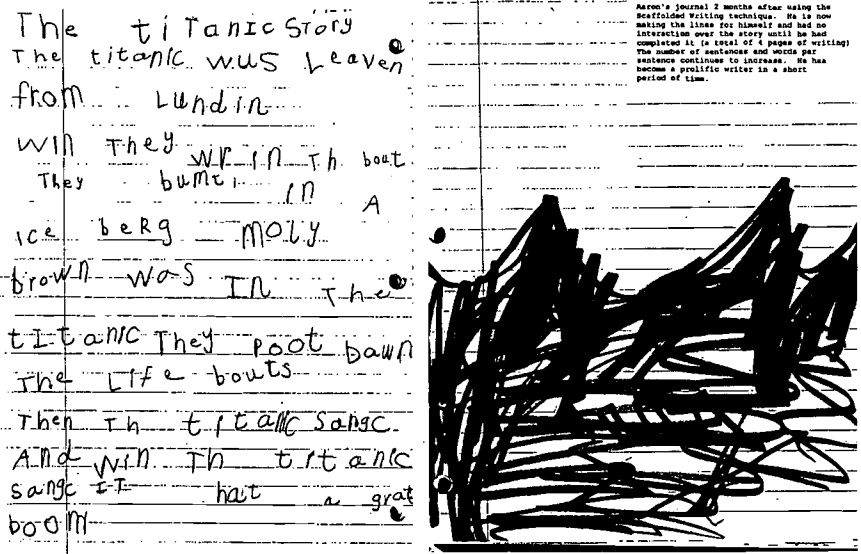 The titanic Story
The titanic wus Leaven
from Lundin
win They wr in Th bout
They bumt in A
ice berg moly
brown was In The
tItanic They poot bawn
The Life bouts
Then Th titanic sangc
And win Th titanic
sangc IT hat a grat
boom
Aaron's journal 2 months after using the
Scaffolded Writing technique. He is now
making the lines for himself and had no
interaction over the story until he had
completed it (a total of 4 pages of writing)
The number of sentences and words per
sentence continues to increase. He has
become a prolific writer in a short
period of time.